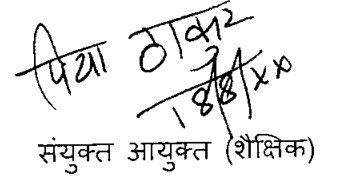 पिया ठाकुर
18/8/XX
संयुक्त आयुक्त (शैक्षिक)